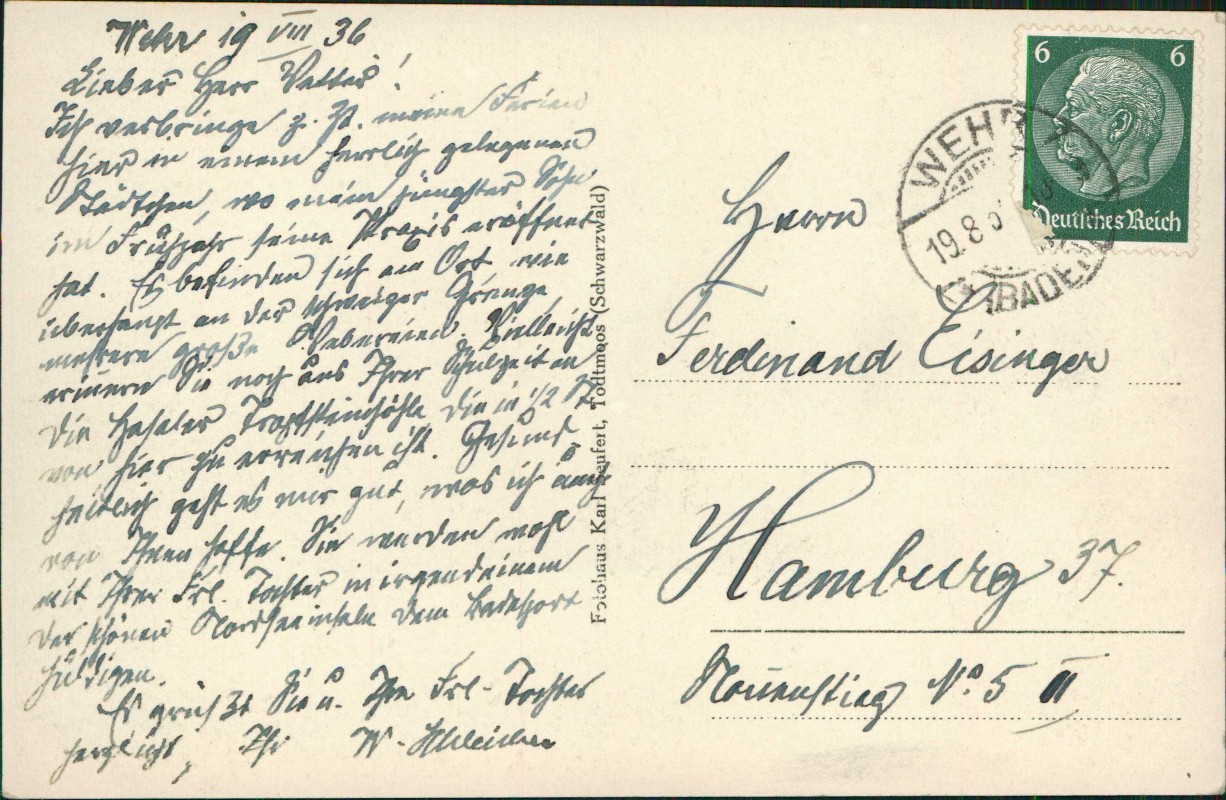 Wehr 19 VIII 36
Lieber Herr Vetter!
Ich verbringe z. Zt. meine Ferien
hier in einem herrlich gelegenen
Städtchen, wo mein jüngster Sohn
im Frühjahr seine Praxis eröffnet
hat. Es befinden sich am Ort, wie
überhaupt an der schweizer Grenze,
mehrere große Webereien. Vielleicht
erinnern Sie noch aus Ihrer Schulzeit an
die Hasaler Tropfsteinhöhle die in 1/2 St
von hier zu erreichen ist. Gesund-
heitlich geht es mir gut, was ich auch
von Ihnen hoffe. Sie werden wohl
mit Ihrer Frl. Tochter in irgendeinem
der schönen Nordseeinseln dem Badesport
huldigen.
Es grüßt Sie u. Ihre Frl. Tochter
herzlichst, Ihr W.
Fotohaus Karl Leufert, Todtmoos (Schwarzwald)
6 6
Deutsches Reich
WEHR
19.8
(BADEN)
Herrn
Ferdinand Eisinger
Hamburg 37.
Nonnenstieg No. 5 II